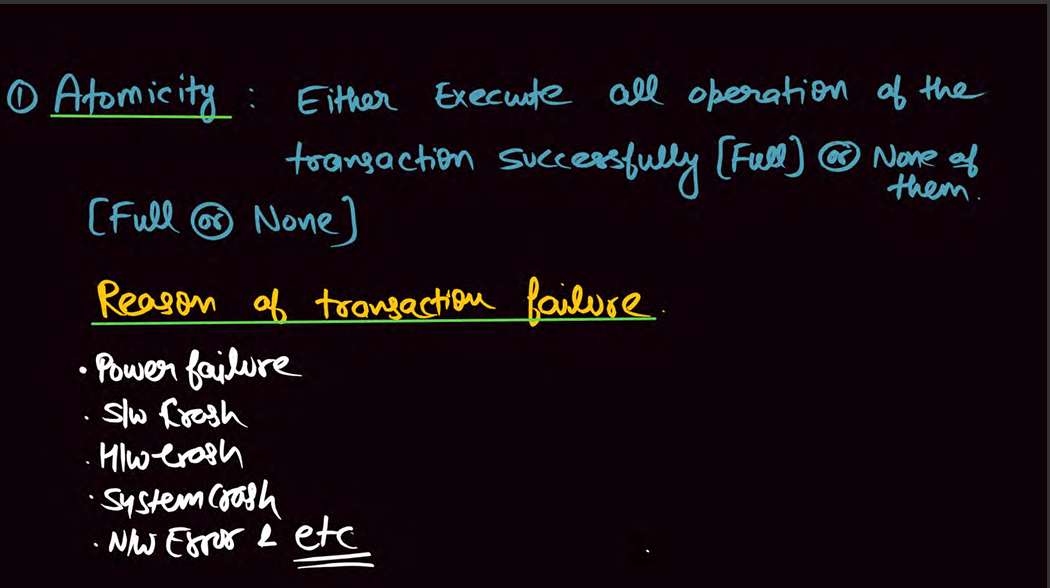 ① Atomicity : Either Execute all operation of the
transaction successfully [Full] or None of
them.
[Full or None]
Reason of transaction failure.
• Power failure
• S/w Crash
• H/w Crash
• System Crash
• N/w Error & etc